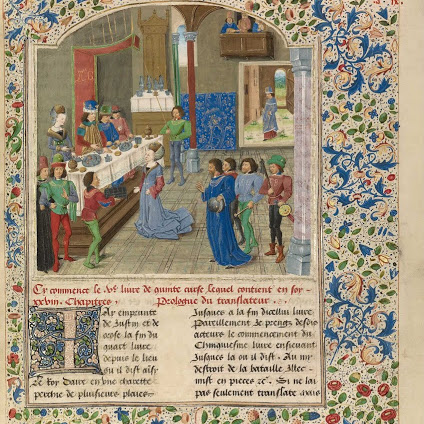 Cy commence le Ve livre de quinte curse, lequel contient en soy
xxviii. Chapitres. Prologue du translateur.
Ay emprunte
de Justin et de
orose la fin du
quart livre
depuis le lieu
quil dist
Le Roy Daire en une charette
perchie de plusieurs plaies
Jusques a la fin dicellui livre
Pareillement Je prengz desdis
acteurs le commencement du
livre ensievant
Jusques la ou il dist. Au my
destroit de la bataille Illec
mist en pieces Si ne lai
pas seulement translate mais